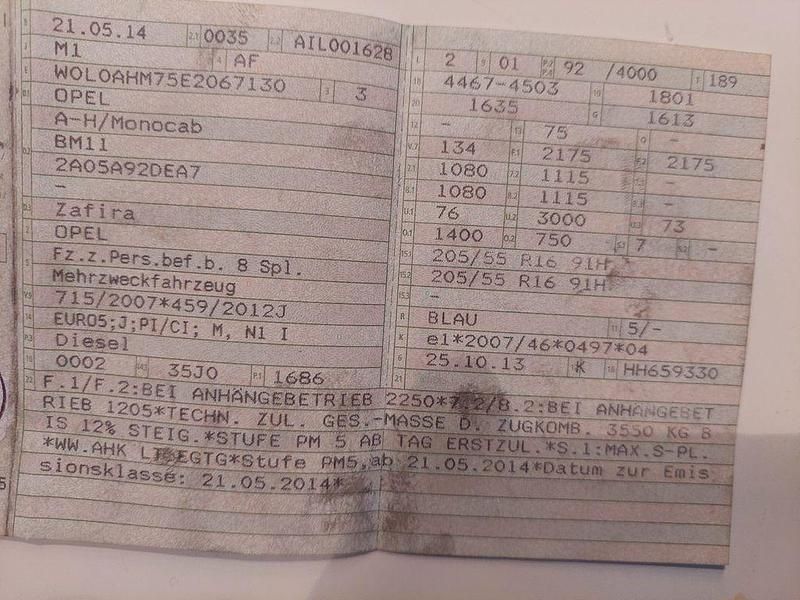 21.05.14 2.1 0035 2.2 AIL001628
M1 4 AF
WOLOAHM75E2067130 3 3
OPEL
A-H/Monocab
BM11
2A05A92DEA7
–
Zafira
OPEL
Fz.z.Pers.bef.b. 8 Spl.
Mehrzweckfahrzeug
715/2007*459/2012J
EURO5;J;PI/CI; M, N1 I
Diesel
0002 35J0 P.1 1686
L 2 9 01 P.2 P.4 92 /4000 T 189
18 4467-4503 19 1801
20 1635 G 1613
12 – 13 75 Q –
V.7 134 F.1 2175 F.2 2175
7.1 1080 7.2 1115 7.3 –
8.1 1080 8.2 1115 8.3 –
U.1 76 U.2 3000 U.3 73
O.1 1400 O.2 750 S.1 7 S.2 –
15.1 205/55 R16 91H
15.2 205/55 R16 91H
15.3 –
R BLAU 11 5/–
K e1*2007/46*0497*04
6 25.10.13 17 K 16 HH659330
21
22 F.1/F.2:BEI ANHÄNGEBETRIEB 2250*7.2/8.2:BEI ANHÄNGEBET
RIEB 1205*TECHN. ZUL. GES.-MASSE D. ZUGKOMB. 3550 KG B
IS 12% STEIG.*STUFE PM 5 AB TAG ERSTZUL.*S.1:MAX.S-PL.
*WW.AHK LT. EGTG*Stufe PM5 ab 21.05.2014*Datum zur Emis
sionsklasse: 21.05.2014*